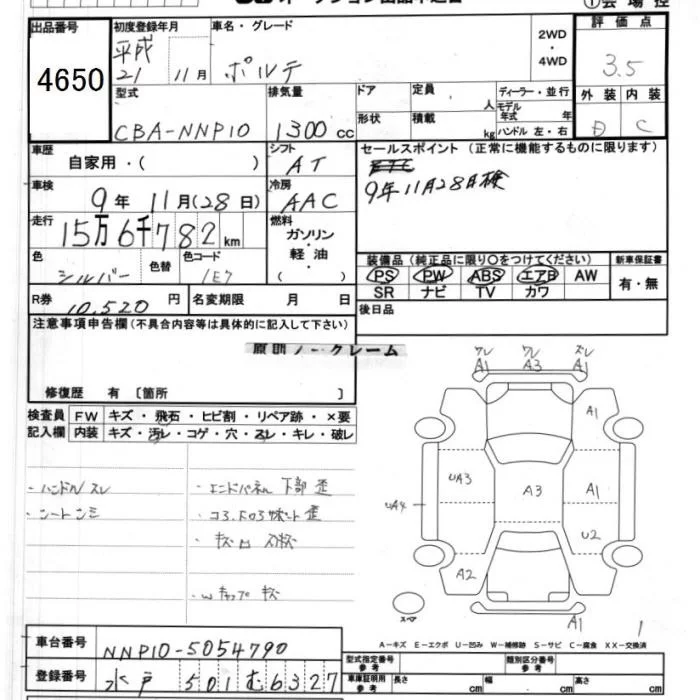 オークション出品申込書
①会場控
出品番号
4650
初度登録年月
平成
21 11月
車名・グレード
ポルテ
2WD
・
4WD
評価点
3.5
外装 内装
D C
型式
CBA-NNP10
排気量
1300cc
ドア
定員
人
ディーラー・並行
モデル年式 年
形状
積載
kg
ハンドル 左・右
車歴
自家用・( )
シフト
AT
セールスポイント(正常に機能するものに限ります)
9年11月28日検
車検
9年11月(28日)
冷房
AAC
走行
15万6千782km
燃料
ガソリン
・
軽油
( )
色
シルバー
色替
色コード
1E7
装備品(純正品に限り○をつけてください)
PS PW ABS エアB AW
SR ナビ TV カワ
新車保証書
有・無
R券
10,520円
名変期限 月 日
後日品
注意事項申告欄(不具合内容等は具体的に記入して下さい)
原則ノークレーム
修復歴 有 〔箇所 〕
検査員
記入欄
FW キズ・飛石・ヒビ割・リペア跡・×要
内装 キズ・汚レ・コゲ・穴・スレ・キレ・破レ
・ハンドルスレ
・シートシミ
・エンドパネル下部歪
・コ3.ドロ3 歪
・キズ凹
・Wキャップキズ
ワレ ワレ ズレ
A1 A3 A1
A1
UA3
A3
A1
UA4
U2
A2
スペア
A1
1
A－キズ E－エクボ U－凹み W－補修跡 S－サビ C－腐食 XX－交換済
車台番号
NNP10-5054790
登録番号
水戸 501 む 6327
型式指定番号
参考
類別区分番号
参考
車庫証明用
参考
長さ cm
幅 cm
高さ cm